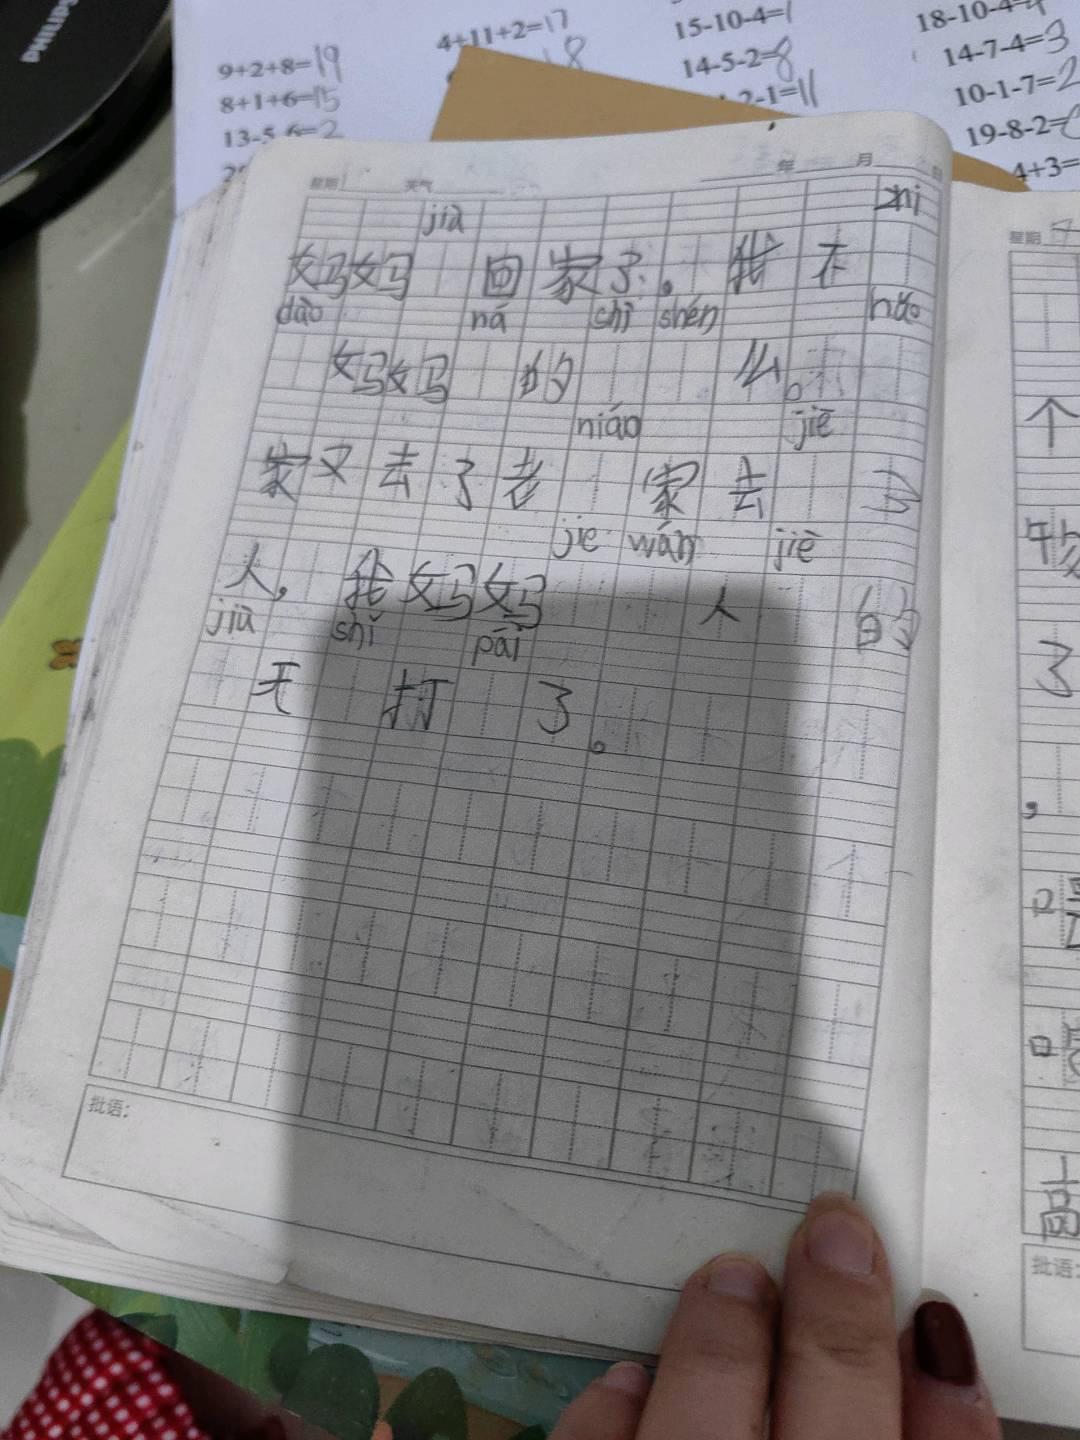 PHILIPS
9+2+8=19
8+1+6=15
13-5-6=2
4+11+2=17
18
15-10-4=1
14-5-2=8
2-1=11
18-10-4=4
14-7-4=3
10-1-7=2
19-8-2=
4+3=
星期 天气 年 月 日
jiā zhi
妈妈 回家了。我不
dào ná shì shén hǎo
妈妈 的 么。
niáo jiē
家又去了老 家去 了
jie wán jiē
人，我妈妈 人 的
jiā shǐ pāi
天 打 了。
批语：
星期
个
了
，
高
批语：